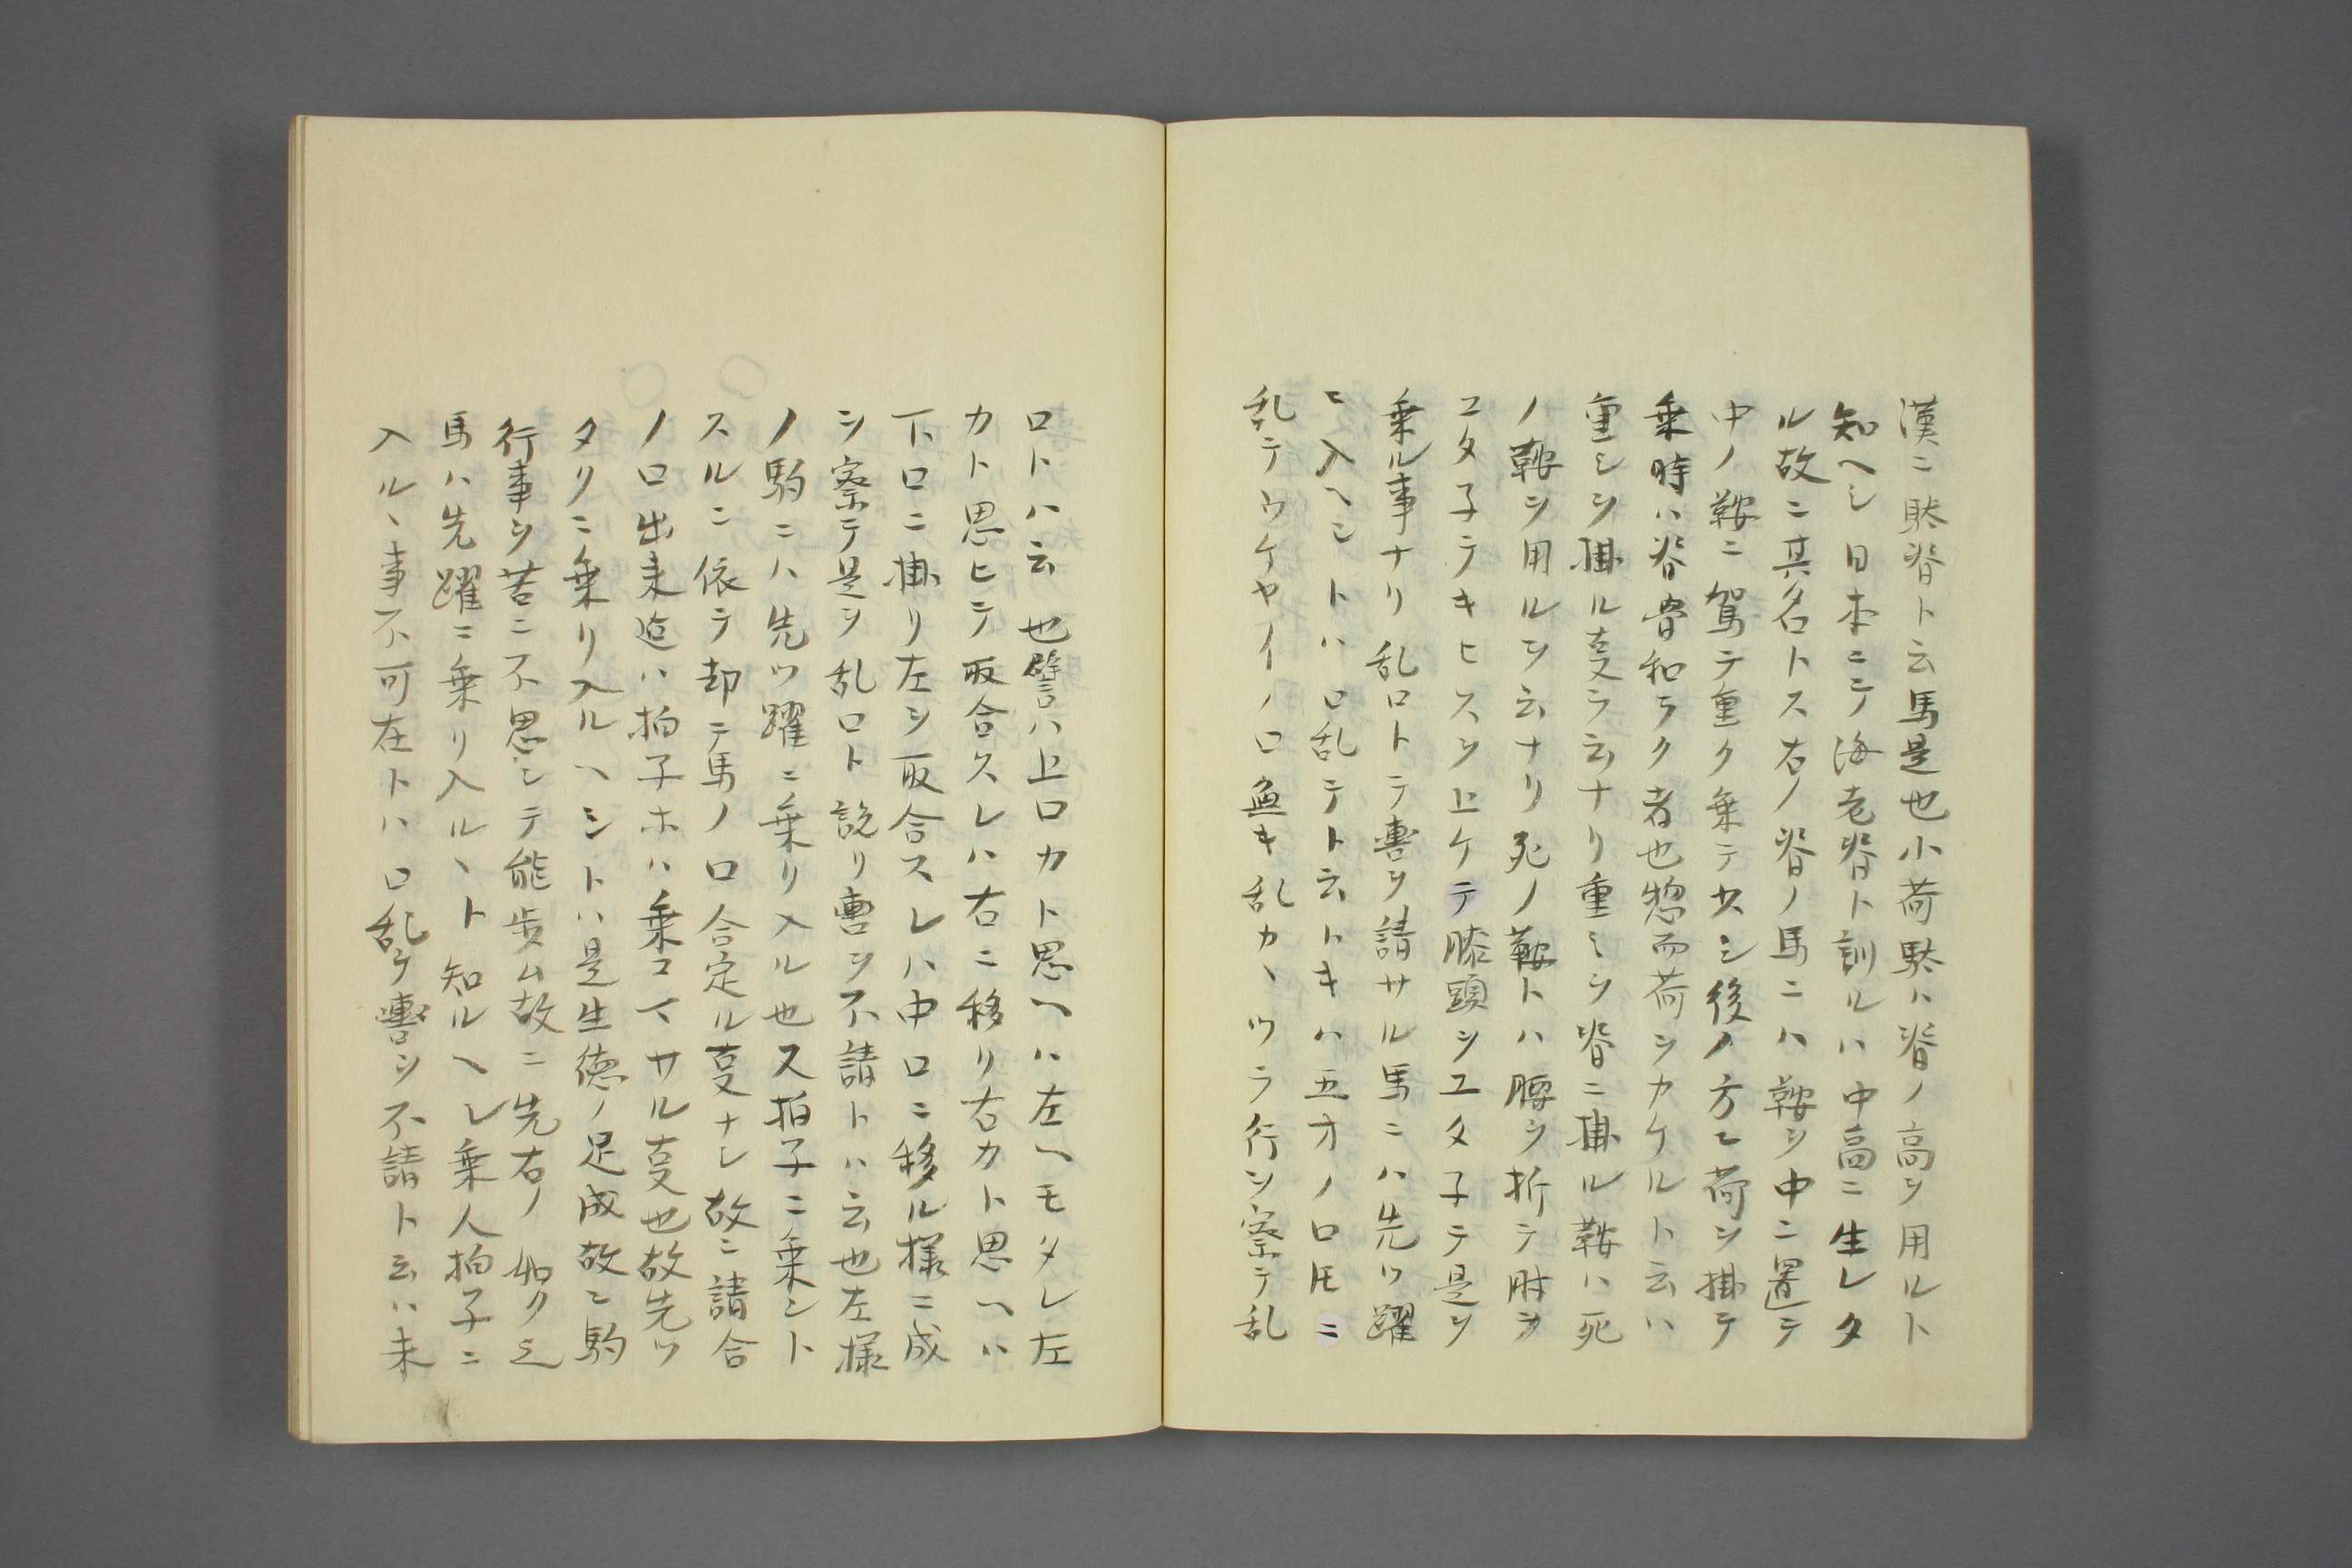 漢ニ駄脊ト云馬是也小荷駄ハ脊ノ高ヲ用ルト
知ヘシ日本ニテ海老脊ト訓ルハ中高ニ生レタ
ル故ニ其名トス右ノ脊ノ馬ニハ鞍ヲ中ニ置テ
中ノ鞍ニ駕テ重ク乗テ少シ後ノ方ヘ荷ヲ掛テ
乗時ハ脊骨和ラク者也惣而荷ヲカケルト云ハ
重ミヲ掛ル叓ヲ云ナリ重ミヲ脊ニ掛ル鞍ハ死
ノ鞍ヲ用ルヲ云ナリ死ノ鞍トハ腰ヲ折テ肘ヲ
ユタ子テキヒスヲ上ケテ膝頭ヲユタ子テ是ヲ
乗ル事ナリ乱口トテ轡ヲ請サル馬ニハ先ツ躍
ニ入ヘシトハ口乱テト云トキハ五方ノ口圧ニ
乱テウケヤイノ口無キ乱カヽツラ行ヲ察テ乱
口トハ云也譬ハ上口カト思ヘハ左ヘモタレ左
カト思ヒテ取合スレハ右ニ移リ右カト思ヘハ
下口ニ掛リ左ヲ取合スレハ中口ニ移ル様ニ成
ヲ察テ是ヲ乱口ト説リ轡ヲ不請トハ云也左様
ノ駒ニハ先ツ躍ニ乗リ入ル也又拍子ニ乗ント
スルニ依テ却テ馬ノ口合定ル叓ナシ故ニ請合
ノ口出来迄ハ拍子ホハ乗コマサル叓也故先ツ
タリニ乗リ入ルヘシトハ是生徳ノ足成故ニ駒
行事ヲ苦ニ不思シテ能歩ム故ニ先右ノ如ク之
馬ハ先躍ニ乗リ入ルヽト知ルヘシ乗人拍子ニ
入ルヽ事不可在トハ口乱テ轡ヲ不請ト云ハ未